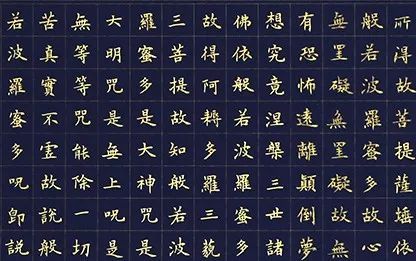 所得故菩提薩埵依
般若波羅蜜多故心
無罣礙無罣礙故無
有恐怖遠離顛倒夢
想究竟涅槃三世諸
佛依般若波羅蜜多
故得阿耨多羅三藐
三菩提故知般若波
羅蜜多是大神咒是
大明咒是無上呪是
無等等咒能除一切
苦真實不虛故說般
若波羅蜜多呪即說